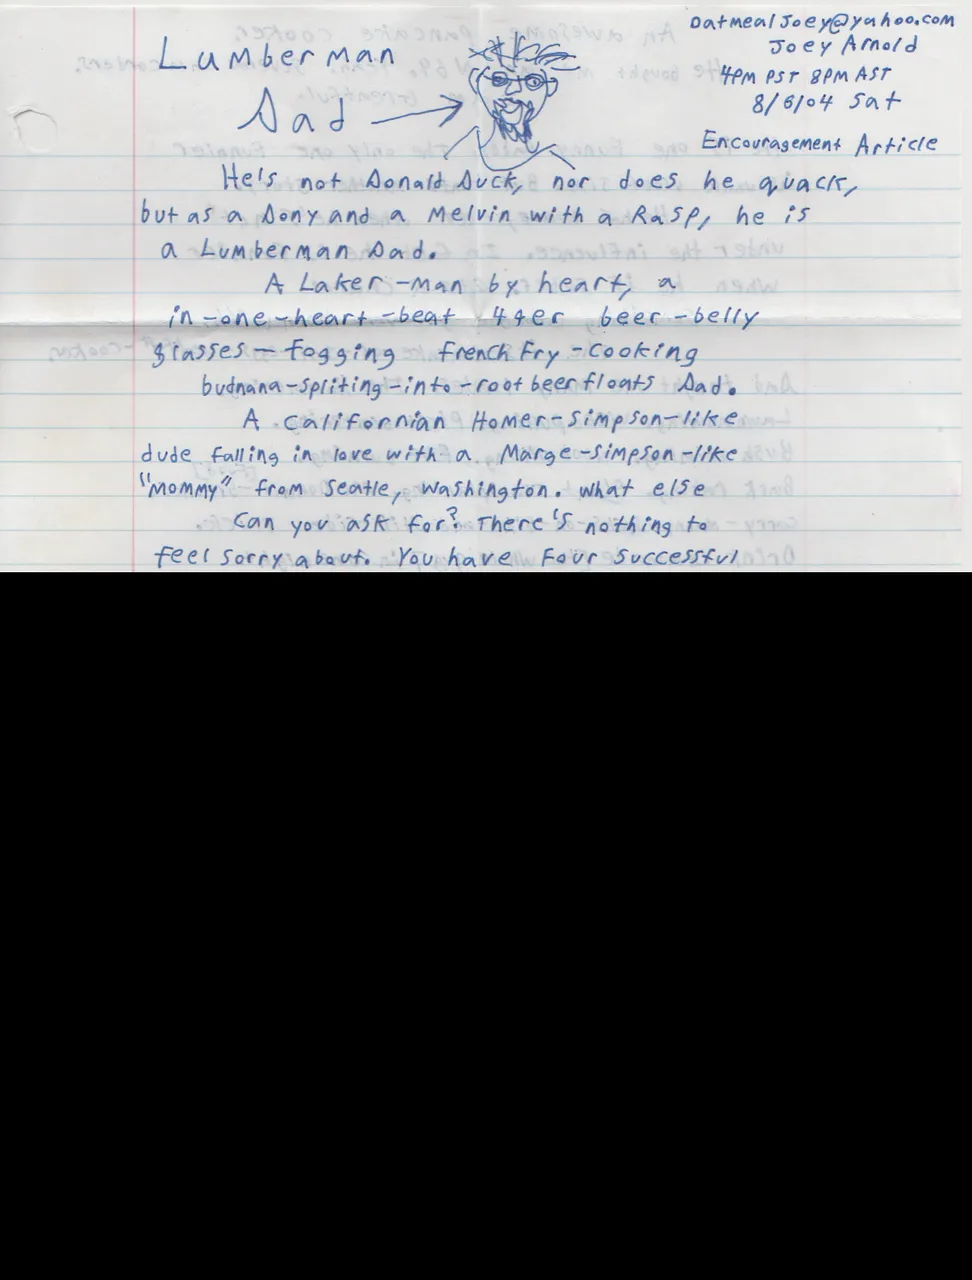 Oatmeal Joey@yahoo.com
Joey Arnold
4PM PST 8PM AST
8/6/04 Sat
Encouragement Article
Lumberman
Dad
He's not Donald Duck, nor does he quack,
but as a Dony and a Melvin with a RaSP, he is
a Lumberman Dad.
A Laker-man by heart, a
in-one-heart-beat 49er beer-belly
glasses-fogging French Fry-cooking
budnana-spliting-into-root beer floats Dad.
A Californian Homer-Simpson-like
dude falling in love with a Marge-Simpson-like
"Mommy" from Seatle, Washington. What else
Can you ask for? There's nothing to
feel sorry about. You have Four Successful